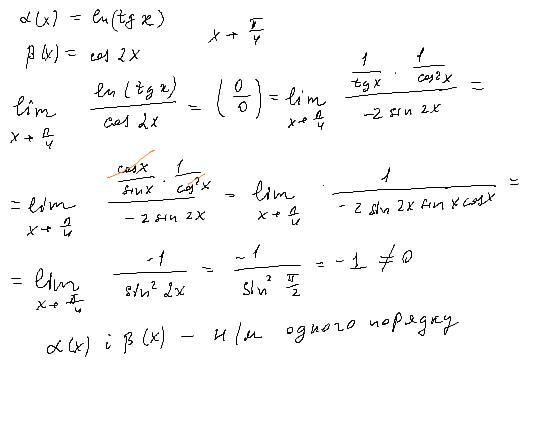 α(x) = ln(tg x)
x → π/4
β(x) = cos 2x
lim x→π/4 ln(tg x)/cos 2x = (0/0) = lim x→π/4 (1/tg x · 1/cos²x)/(-2 sin 2x) =
= lim x→π/4 (cos x/sin x · 1/cos²x)/(-2 sin 2x) = lim x→π/4 · 1/(-2 sin 2x sin x cos x) =
= lim x→π/4 -1/sin² 2x = -1/sin² π/2 = -1 ≠ 0
α(x) і β(x) – н/м одного порядку